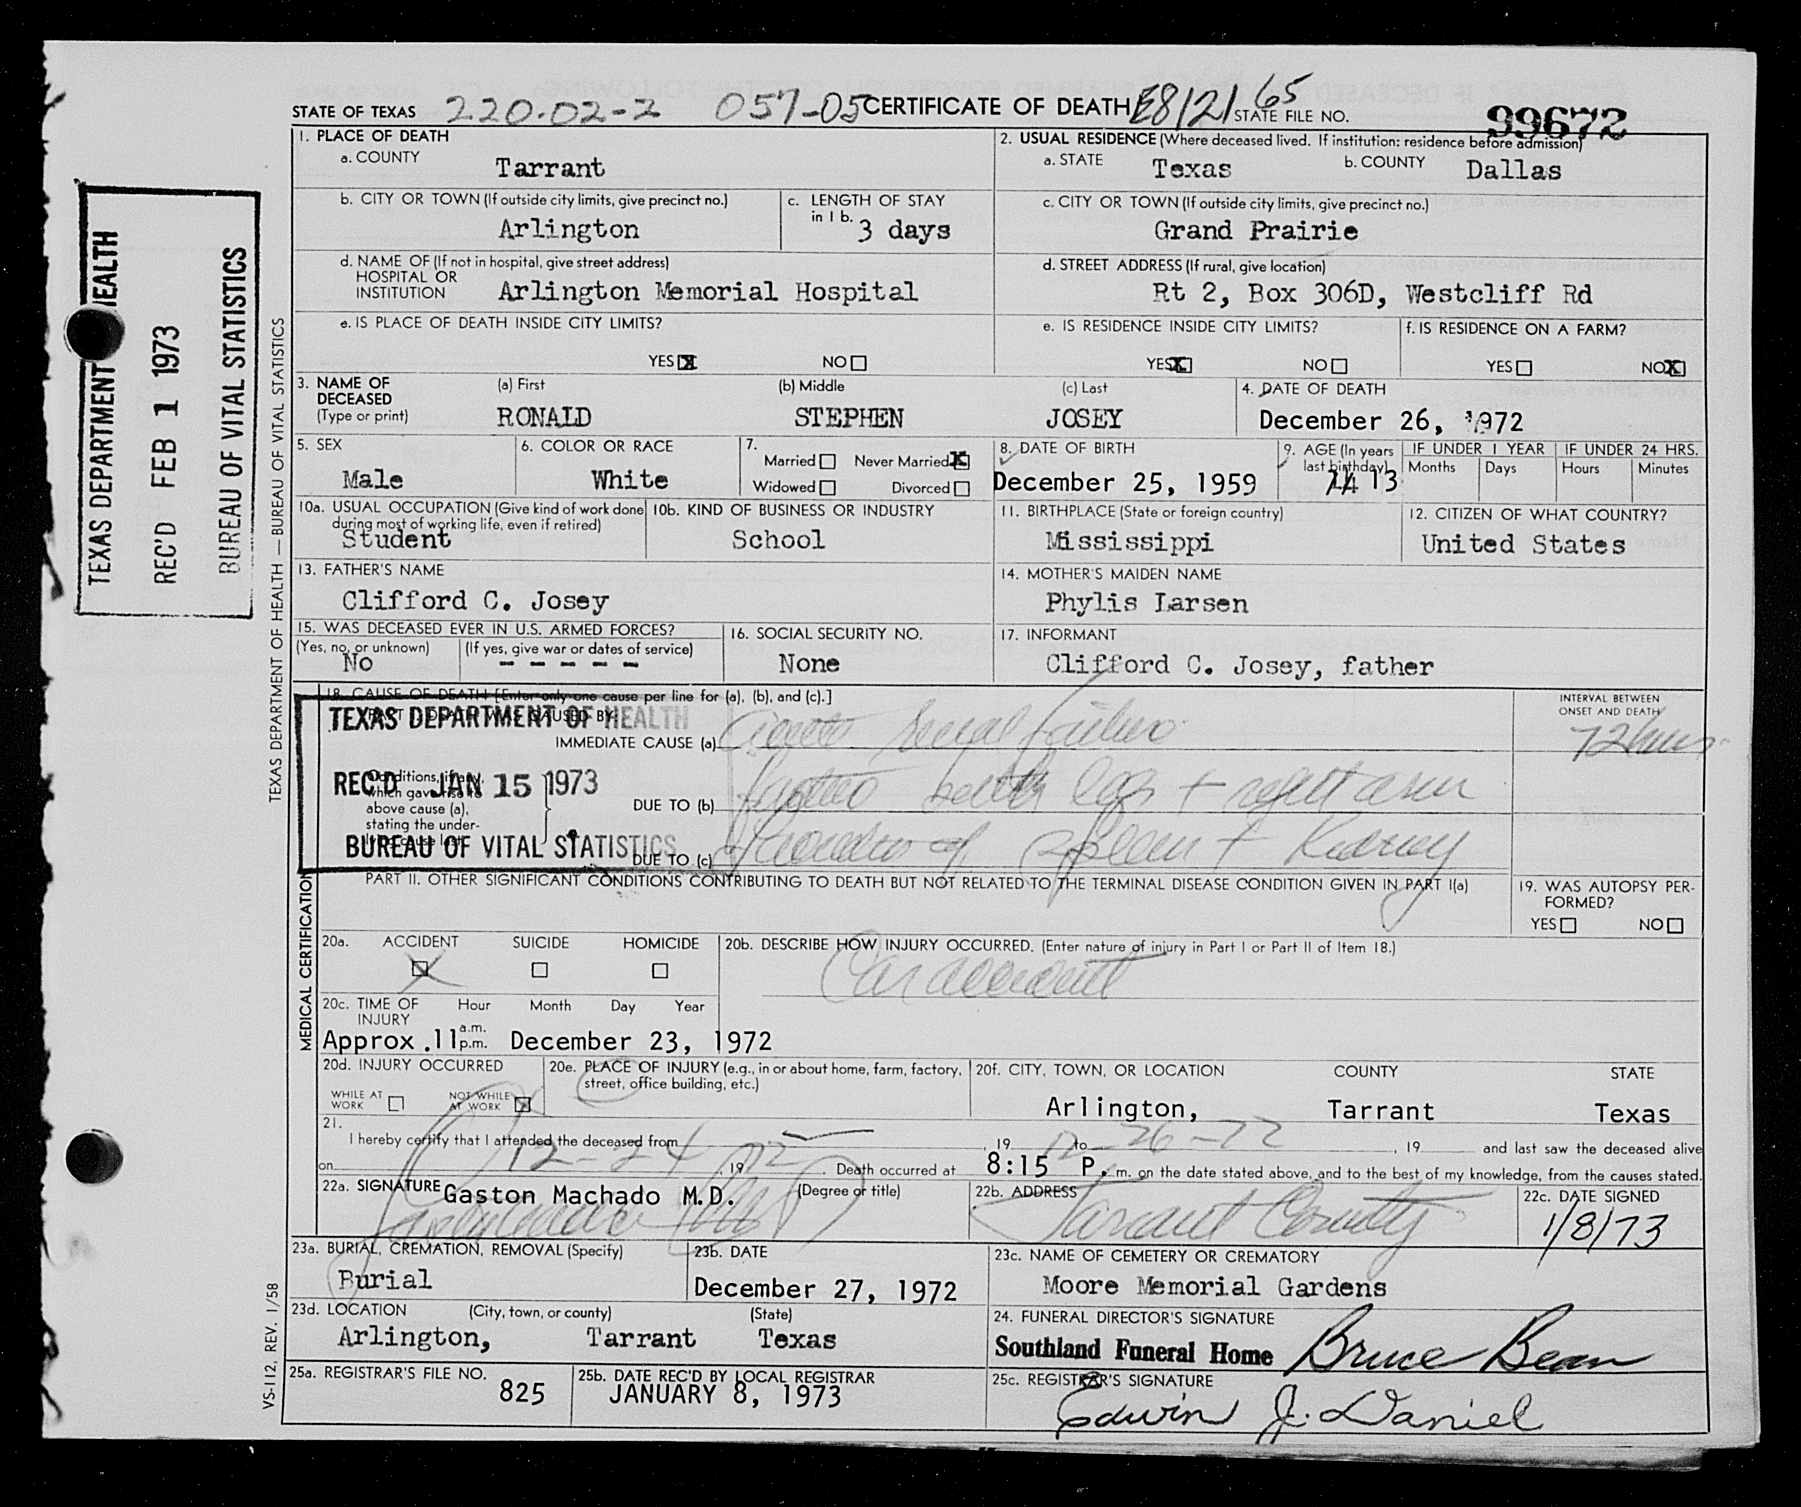 STATE OF TEXAS 220-02-2 057-05 CERTIFICATE OF DEATH E8121 65 STATE FILE NO. 99672
1. PLACE OF DEATH
a. COUNTY Tarrant
2. USUAL RESIDENCE (Where deceased lived. If institution: residence before admission)
a. STATE Texas b. COUNTY Dallas
b. CITY OR TOWN (If outside city limits, give precinct no.) Arlington
c. LENGTH OF STAY in 1 b. 3 days
c. CITY OR TOWN (If outside city limits, give precinct no.) Grand Prairie
d. NAME OF (If not in hospital, give street address) HOSPITAL OR INSTITUTION Arlington Memorial Hospital
d. STREET ADDRESS (If rural, give location) Rt 2, Box 306D, Westcliff Rd
e. IS PLACE OF DEATH INSIDE CITY LIMITS? YES X NO
e. IS RESIDENCE INSIDE CITY LIMITS? YES X NO
f. IS RESIDENCE ON A FARM? YES NO X
3. NAME OF DECEASED (Type or print)
(a) First RONALD (b) Middle STEPHEN (c) Last JOSEY
4. DATE OF DEATH December 26, 1972
5. SEX Male
6. COLOR OR RACE White
7. Married Never Married X Widowed Divorced
8. DATE OF BIRTH December 25, 1959
9. AGE (In years last birthday) 14 13
IF UNDER 1 YEAR Months Days
IF UNDER 24 HRS. Hours Minutes
10a. USUAL OCCUPATION (Give kind of work done during most of working life, even if retired) Student
10b. KIND OF BUSINESS OR INDUSTRY School
11. BIRTHPLACE (State or foreign country) Mississippi
12. CITIZEN OF WHAT COUNTRY? United States
13. FATHER'S NAME Clifford C. Josey
14. MOTHER'S MAIDEN NAME Phylis Larsen
15. WAS DECEASED EVER IN U.S. ARMED FORCES?
(Yes, no, or unknown) No (If yes, give war or dates of service) - - - - -
16. SOCIAL SECURITY NO. None
17. INFORMANT Clifford C. Josey, father
18. CAUSE OF DEATH [Enter only one cause per line for (a), (b), and (c).]
INTERVAL BETWEEN ONSET AND DEATH
PART I. DEATH WAS CAUSED BY:
IMMEDIATE CAUSE (a) Acute renal failure 72 hours
Conditions, if any, which gave rise to above cause (a), stating the underlying cause last.
DUE TO (b) both legs + right arm
DUE TO (c) of spleen + Kidney
TEXAS DEPARTMENT OF HEALTH
REC'D JAN 15 1973
BUREAU OF VITAL STATISTICS
PART II. OTHER SIGNIFICANT CONDITIONS CONTRIBUTING TO DEATH BUT NOT RELATED TO THE TERMINAL DISEASE CONDITION GIVEN IN PART I(a)
19. WAS AUTOPSY PERFORMED? YES NO
20a. ACCIDENT X SUICIDE HOMICIDE
20b. DESCRIBE HOW INJURY OCCURRED. (Enter nature of injury in Part I or Part II of Item 18.)
Car accident
20c. TIME OF INJURY Hour Month Day Year
Approx. 11 a.m. p.m. December 23, 1972
20d. INJURY OCCURRED
WHILE AT WORK NOT WHILE AT WORK X
20e. PLACE OF INJURY (e.g., in or about home, farm, factory, street, office building, etc.)
20f. CITY, TOWN, OR LOCATION COUNTY STATE
Arlington, Tarrant Texas
21. I hereby certify that I attended the deceased from 12-24 19 72 to 12-26-72, 19 and last saw the deceased alive
on , 19 . Death occurred at 8:15 P. m. on the date stated above, and to the best of my knowledge, from the causes stated.
22a. SIGNATURE Gaston Machado M.D. (Degree or title)
22b. ADDRESS Tarrant County
22c. DATE SIGNED 1/8/73
23a. BURIAL, CREMATION, REMOVAL (Specify) Burial
23b. DATE December 27, 1972
23c. NAME OF CEMETERY OR CREMATORY Moore Memorial Gardens
23d. LOCATION (City, town, or county) (State)
Arlington, Tarrant Texas
24. FUNERAL DIRECTOR'S SIGNATURE
Southland Funeral Home Bruce Bean
25a. REGISTRAR'S FILE NO. 825
25b. DATE REC'D BY LOCAL REGISTRAR JANUARY 8, 1973
25c. REGISTRAR'S SIGNATURE Edwin J. Daniel
TEXAS DEPARTMENT HEALTH
REC'D FEB 1 1973
BUREAU OF VITAL STATISTICS
TEXAS DEPARTMENT OF HEALTH — BUREAU OF VITAL STATISTICS
MEDICAL CERTIFICATION
VS-112, REV. 1/58